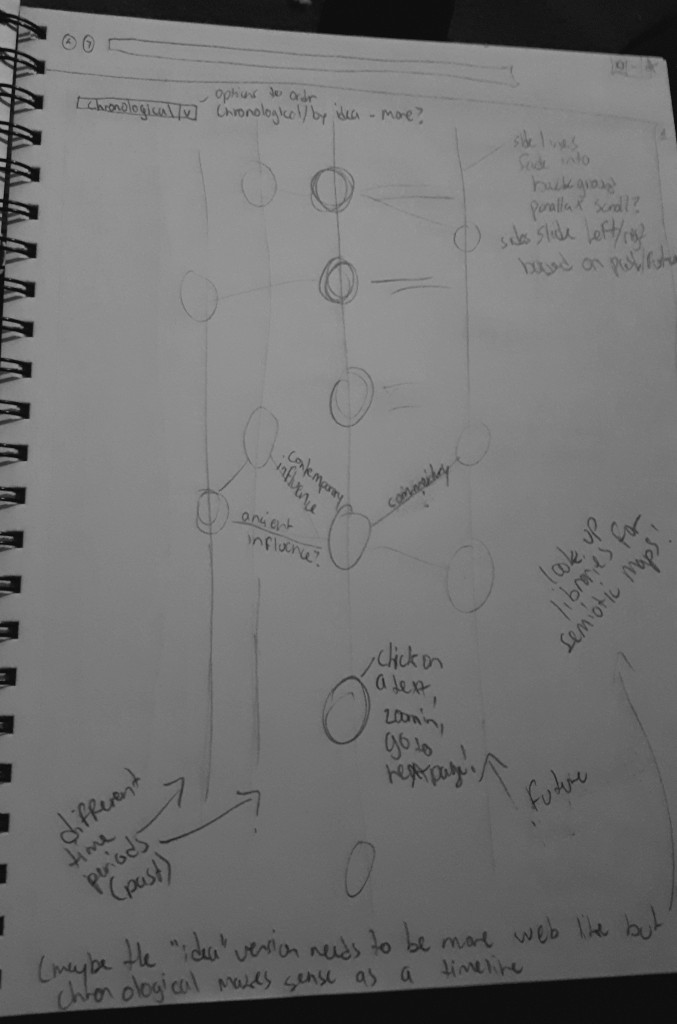 options to order
chronological | v
Chronological/by idea - more?
side lines
fade into
background
parallax scroll?
sides slide left/right
based on past/future
contemporary
influence
commentary
ancient
influence?
look up
libraries for
semiotic maps!
click on
a text,
zoom in,
go to
next page!
future
different
time
periods
(past)
(maybe the "idea" version needs to be more web like but
chronological makes sense as a timeline